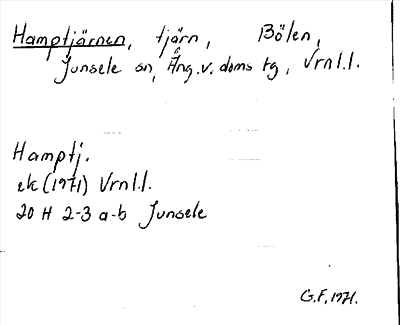 Hamptjärnen, tjärn, Bölen,
Junsele sn, Ång.v. doms tg, Vrnl.l.
Hamptj.
ek (1971) Vrnl.l.
20 H 2-3 a-b Junsele
G.F. 1971.